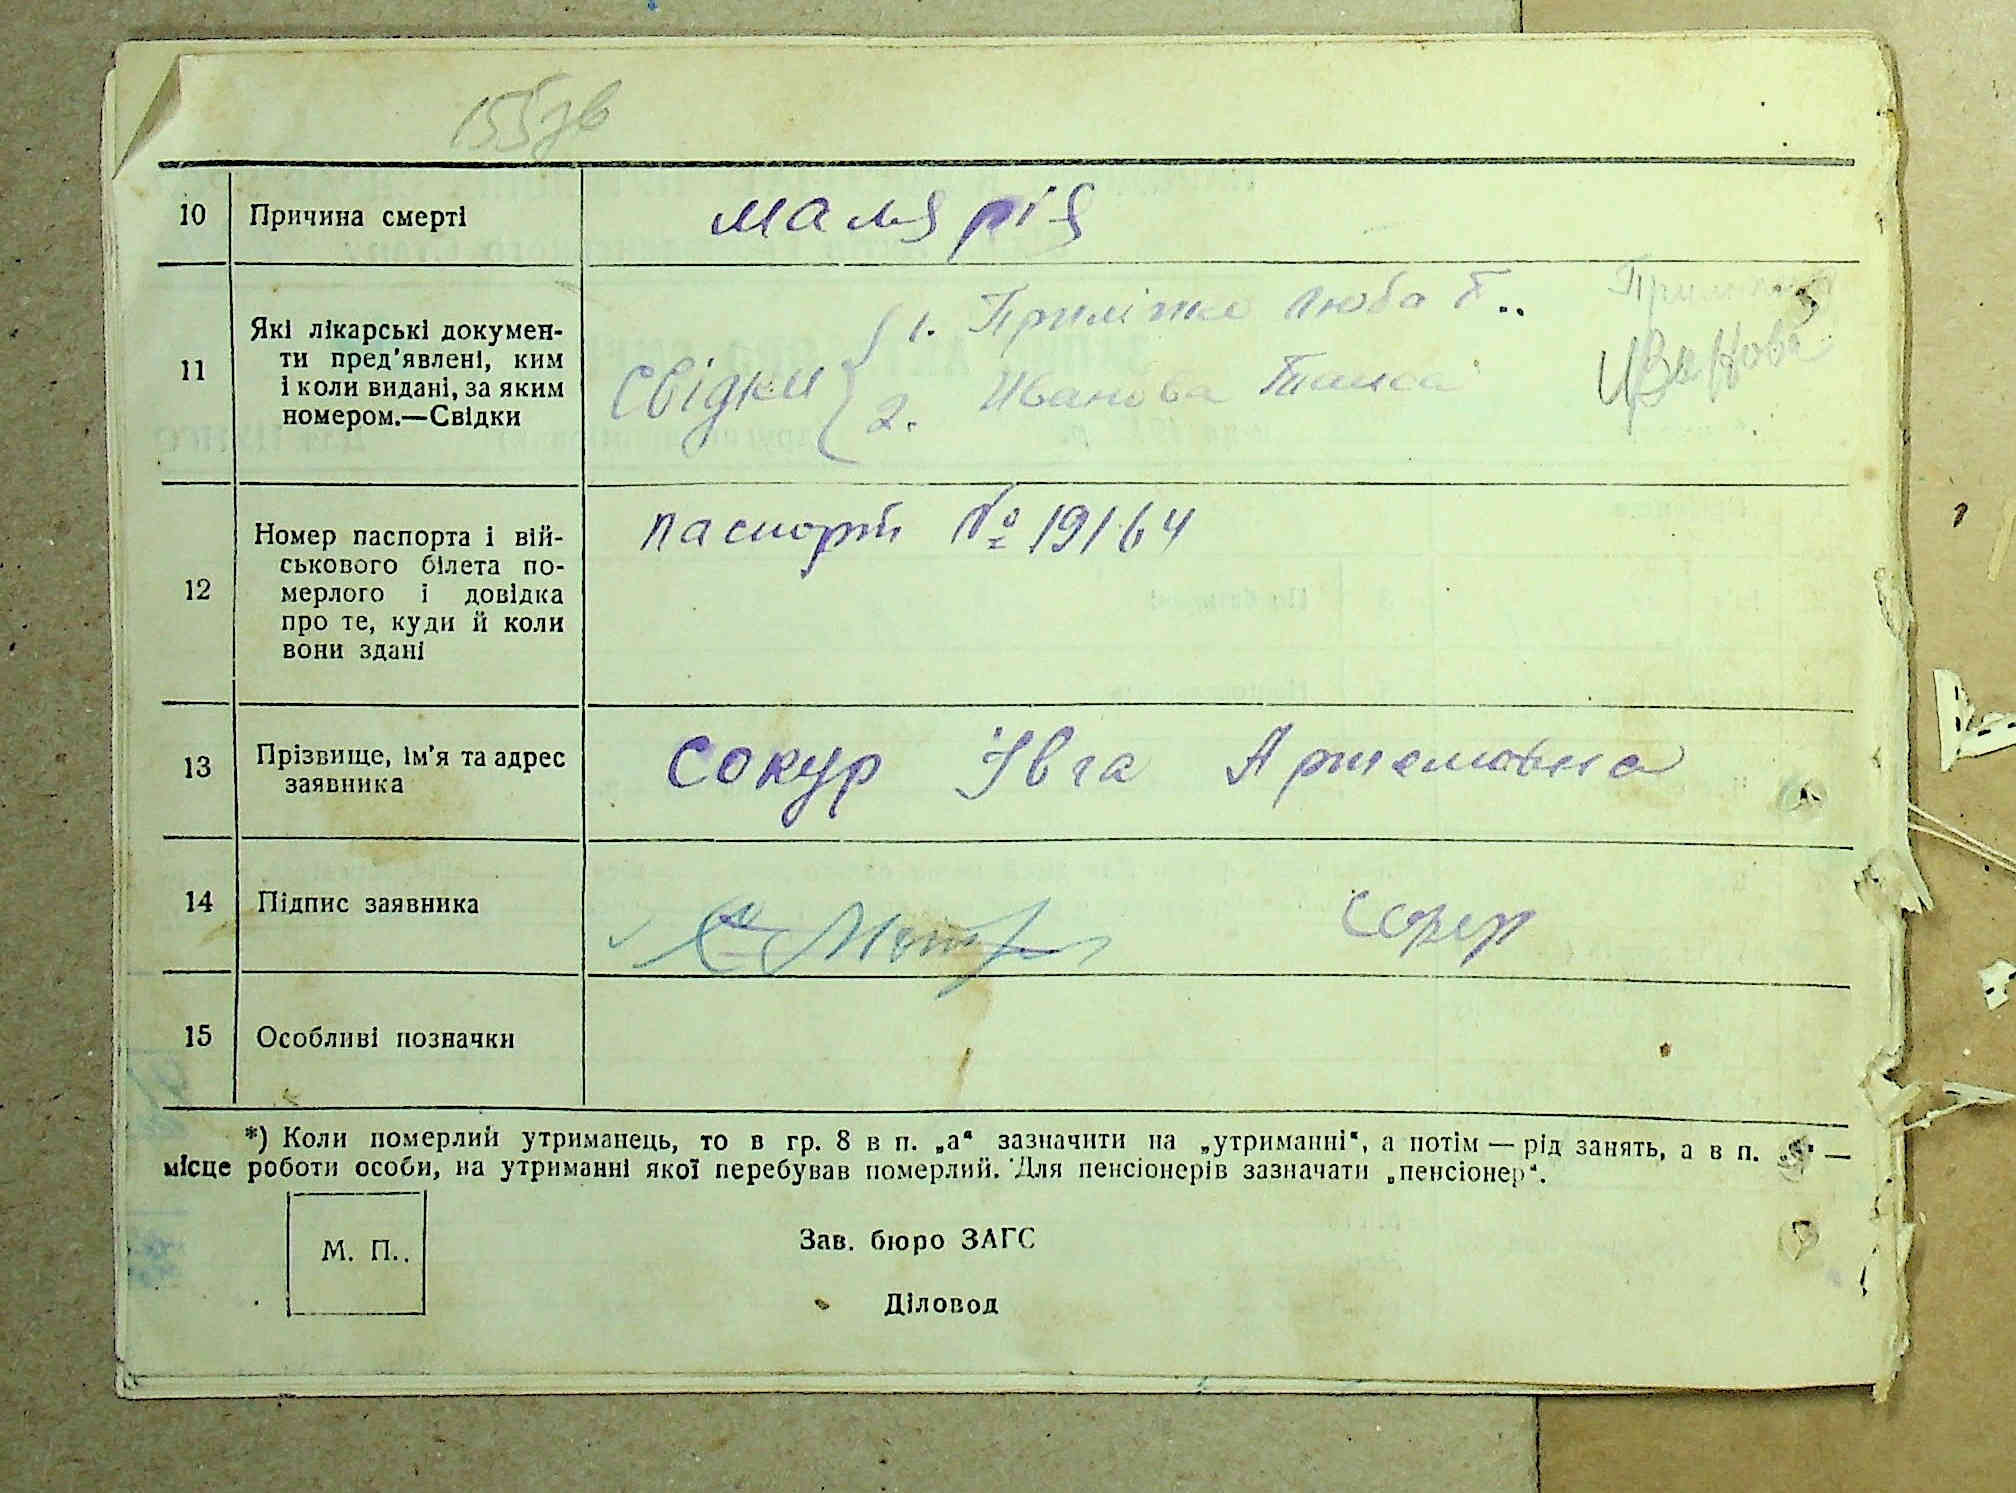 155зв
10 Причина смерті малярія
11 Які лікарські докумен-
ти пред'явлені, ким
і коли видані, за яким
номером.—Свідки
Свідки
1. Люба
2. Иванова Таиса
Иванова
12 Номер паспорта і вій-
ськового білета по-
мерлого і довідка
про те, куди й коли
вони здані
паспорт № 19164
13 Прізвище, ім'я та адрес
заявника
Сокур Івга Артемовна
14 Підпис заявника
Сокур
15 Особливі позначки
*) Коли померлий утриманець, то в гр. 8 в п. „а“ зазначити на „утриманні“, а потім — рід занять, а в п. —
місце роботи особи, на утриманні якої перебував померлий. Для пенсіонерів зазначати „пенсіонер“.
М. П.
Зав. бюро ЗАГС
Діловод